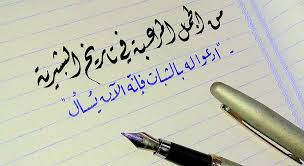 من الجمل المرعبة في تاريخ البشرية
- " ادعوا له بالثبات فإنه الآن يُسأل "